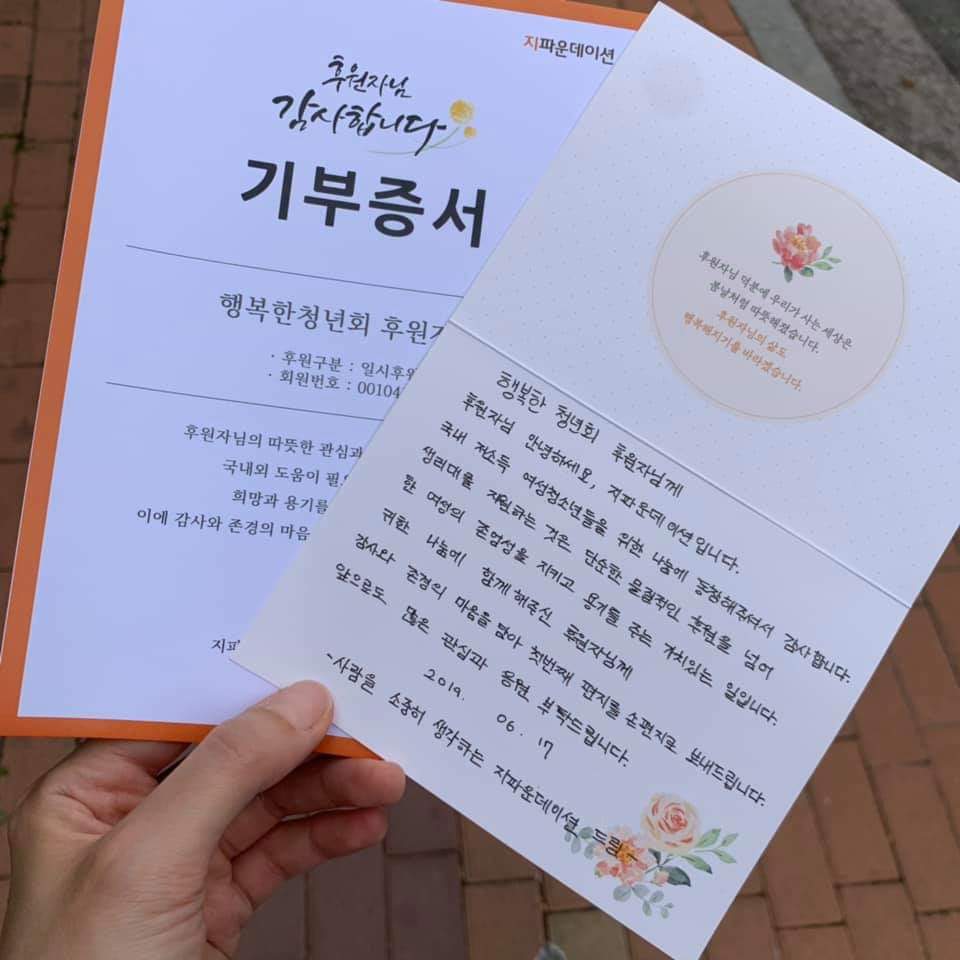 지파운데이션
후원자님
감사합니다
기부증서
행복한청년회 후원
· 후원구분 : 일시후원
· 회원번호 : 00104
후원자님의 따뜻한 관심과
국내외 도움이
희망과 용기를
이에 감사와 존경의 마음
후원자님 덕분에 우리가 사는 세상은
봄날처럼 따뜻해졌습니다.
후원자님의 삶도
행복해지기를 바라겠습니다.
행복한 청년회 후원자님께
후원자님 안녕하세요, 지파운데이션입니다.
국내 저소득 여성청소년들을 위한 나눔에 동참해주셔서 감사합니다.
생리대를 지원하는 것은 단순한 물질적인 후원을 넘어
한 여성의 존엄성을 지키고 용기를 주는 가치있는 일입니다.
귀한 나눔에 함께해주신 후원자님께
감사와 존경의 마음을 담아 첫번째 편지를 손편지로 보내드립니다.
앞으로도 많은 관심과 응원 부탁드립니다.
2019. 06. 17
-사람을 소중히 생각하는 지파운데이션 드림-